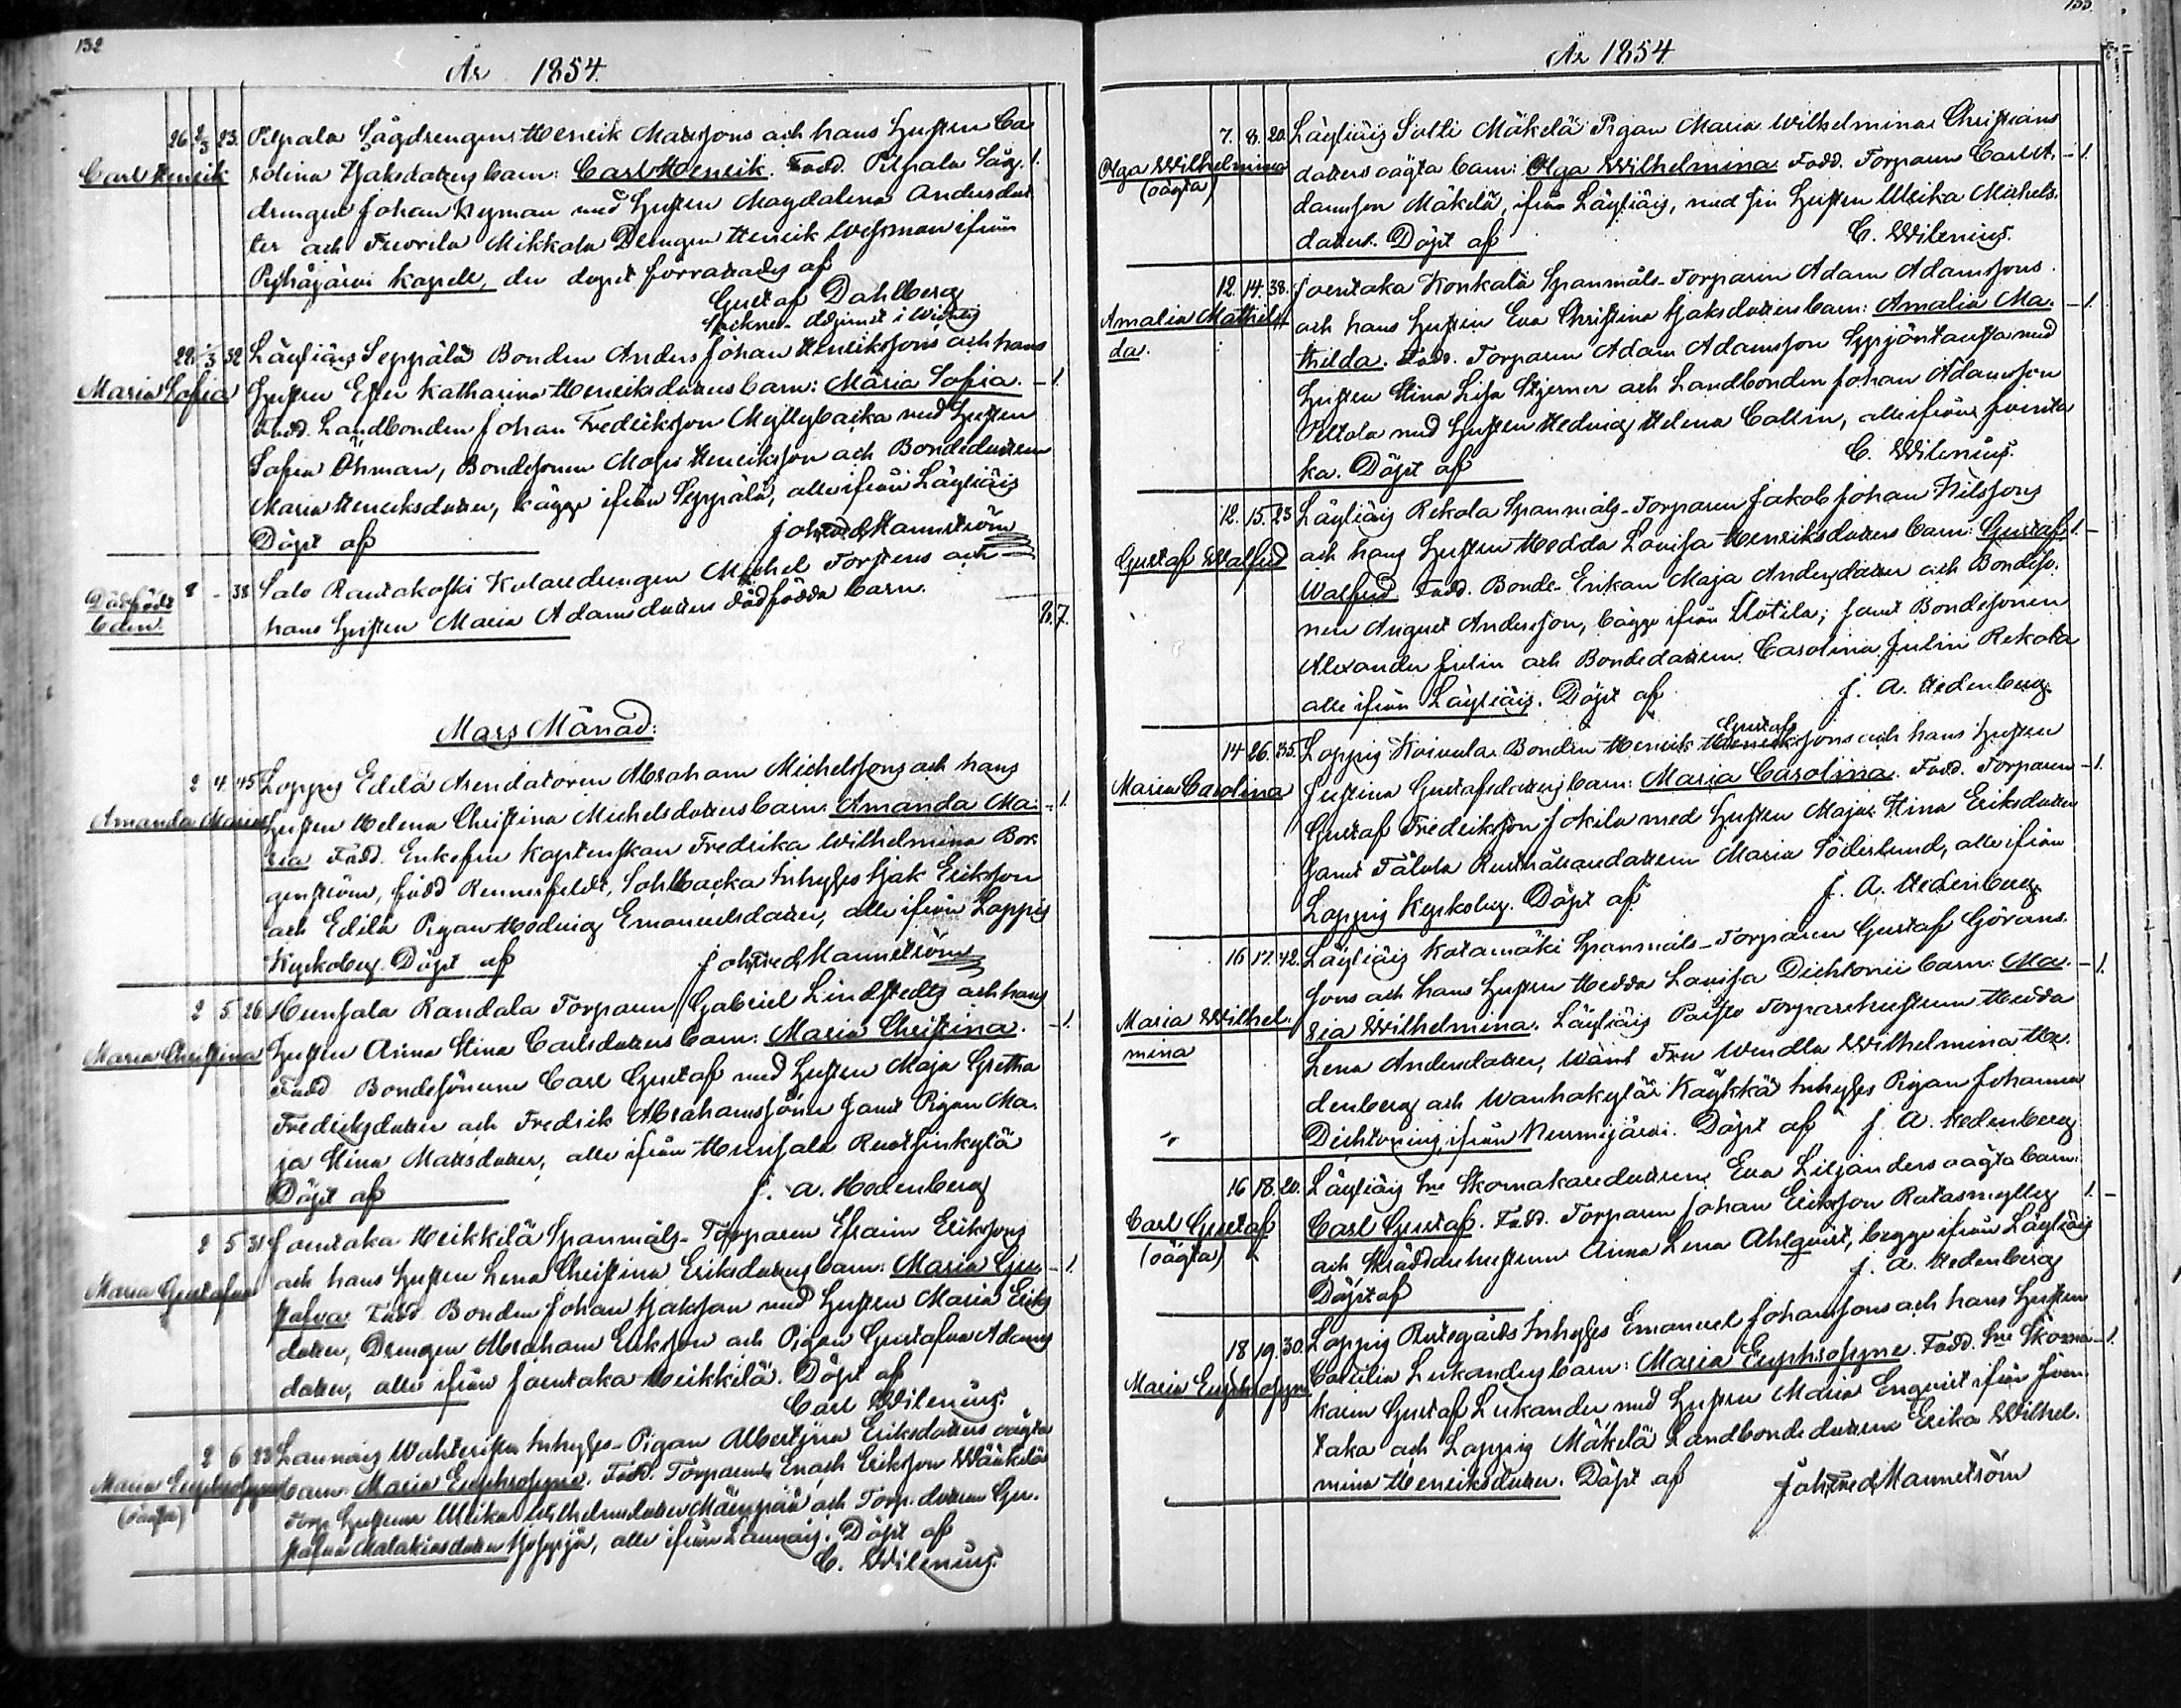 132
År 1854.
26 2/3 23. Pilpala Sågdrengens Henrik Matssons och hans Hustru Ca
Carl Henrik
rolina Isaksdotters barn: Carl Henrik. Fadd. Pilpala Såg- 1.
drengen Johan Nyman med Hustru Magdalena Andersdot
ter och Mikkola Drengen Henrik Wessman ifrån
Pyhäjärvi Kapell, der dopet förrättades af
Gustaf Dahlberg
Sockne-Adjunct i Wichtis
28 1/3 32 Läyliäis Seppälä Bonden Anders Johan Henrikssons och hans
Maria Sofia
Hustru Ester Katharina Henriksdotters barn: Maria Sofia. - 1.
Fadd. Landbonden Johan Fredriksson Myllybacka med Hustru
Sofia Öhman, Bondesonen Moses Henriksson och Bondedottren
Maria Henriksdotter, bägge ifrån Seppälä, alle ifrån Läyliäis
Döpt af Joh. Fred. Mannström
Dödfödt barn
8 - 38 Salo Rautakoski Kolaredrengen Michel Torstens och
hans Hustru Maria Adamsdotters dödfödda barn.
8. 7.
Mars Månad:
2 4 45 Loppis Edelä Arendatoren Abraham Michelssons och hans
Amanda Maria
Hustru Helena Christina Michelsdotters barn: Amanda Ma- - 1.
ria Fadd. Enkefru Kaptenskan Fredrika Wilhelmina Bor
genström, född Rennerfeldt, Sohlbacka Inhyses Isak Eriksson
och Edelä Pigan Hedvig Emanuelsdotter, alle ifrån Loppis
Kyrkoby. Döpt af Joh. Fred. Mannström
2 5 26 Hunsala Randala Torparen Gabriel Lindstedts och hans
Maria Christina
Hustru Anna Stina Carlsdotters barn: Maria Christina. - 1.
Fadd Bondesönerne Carl Gustaf med Hustru Maja Gretha
Fredriksdotter och Fredrik Abrahamssöner samt Pigan Ma-
ja Stina Matsdotter, alle ifrån Hunsala Ruotsinkylä
Döpt af J. A. Hedenberg
2 5 31 Joentaka Heikkilä Spanmåls-Torparen Efraim Erikssons
Maria Gustafva
och hans Hustru Lena Christina Eriksdotters barn: Maria Gu- - 1.
stafva Fadd. Bonden Johan Isaksson med Hustru Maria Eriks
dotter, Drengen Abraham Eriksson och Pigan Gustafva Adams
dotter, alle ifrån Joentaka Heikkilä. Döpt af
Carl Wilenius.
2 6 23 Launois Wahterista Inhyses-Pigan Albertina Eriksdotters oägta
Maria Euphrosyne
(oägta)
barn: Maria Euphrosyne. Fadd. Torparen Enoch Eriksson
Torp. Hustrun Ulrika Wilhelmsdotter Mäenpää och Torp. dottren Gu-
stafva Malakiasdotter, alle ifrån Launois. Döpt af
C. Wilenius.
År 1854
7. 8. 20. Läyliäis Salti Mäkelä Pigan Maria Wilhelmina Christians
Olga Wilhelmina
(oägta)
dotters oägta barn: Olga Wilhelmina. Fadd. Torparen Carl A- - 1.
damsson Mäkelä, ifrån Läyliäis, med sin Hustru Ulrika Michels-
dotter. Döpt af C. Wilenius.
12. 14. 38. Joentaka Konkala Spanmåls-Torparen Adam Adamssons
Amalia Mathil
da.
och hans Hustru Eva Christina Isaksdotters barn: Amalia Ma- - 1.
thilda. Fadd. Torparen Adam Adamsson med
Hustru Stina Lisa Stjerner och Landbonden Johan Adamsson
Peltola med Hustru Hedvig Helena Callin, alle ifrån Joenta
ka. Döpt af C. Wilenius.
12. 15. 23 Läyliäis Rekola Spanmåls-Torparen Jakob Johan Nilssons
Gustaf Walfrid
och hans Hustru Hedda Lovisa Henriksdotters barn: Gustaf 1. -
Walfrid. Fadd. Bonde-Enkan Maja Andersdotter och Bondeso-
nen August Andersson, bägge ifrån Uotila; samt Bondesonen
Alexander Julin och Bondedottren Carolina Julin Rekola
alle ifrån Läyliäis. Döpt af J. A. Hedenberg
14 26. 35. Loppis Koivula Bonden Henrik Gustafssons och hans Hustru
Maria Carolina
Justina Gustafsdotters barn: Maria Carolina. Fadd. Torparen - 1.
Gustaf Fredriksson Jokila med Hustru Maja Stina Eriksdotter
samt Tålola Rusthållaredottren Maria Söderlund, alle ifrån
Loppis Kyrkoby. Döpt af J. A. Hedenberg
16 17. 42. Läyliäis Katamäki Spanmåls-Torparen Gustaf Görans-
Maria Wilhel-
mina
sons och hans Hustru Hedda Lovisa Dichtonii barn: Ma- - 1.
ria Wilhelmina. Läyliäis Paisto Torparehustrun Hedda
Lena Andersdotter, Wänt Fru Wendla Wilhelmina He-
denberg och Wanhakylä Käykkä Inhyses Pigan Johanna
Dichtonius, ifrån Nurmijärvi. Döpt af J. A. Hedenberg
16 18. 20. Läyliäis Skomakaredottren Eva Liljanders oägta barn:
Carl Gustaf
(oägta)
Carl Gustaf. Fadd. Torparen Johan Eriksson Ratasmylly 1. -
och Skräddarehustrun Anna Lena Ahlqvist, begge ifrån Läyliäis
Döpt af J. A. Hedenberg
18 19. 30. Loppis Rutegårds Inhyses Emanuel Johanssons och hans Hustru
Maria Euphrosyne
Cecilia Lukanders barn: Maria Euphrosyne. Fadd. Skoma- - 1.
karen Gustaf Lukander med Hustru Maria Enqvist ifrån Joen-
taka och Loppis Mäkelä Landbondedottren Erika Wilhel-
mina Henriksdotter. Döpt af Joh. Fred. Mannström